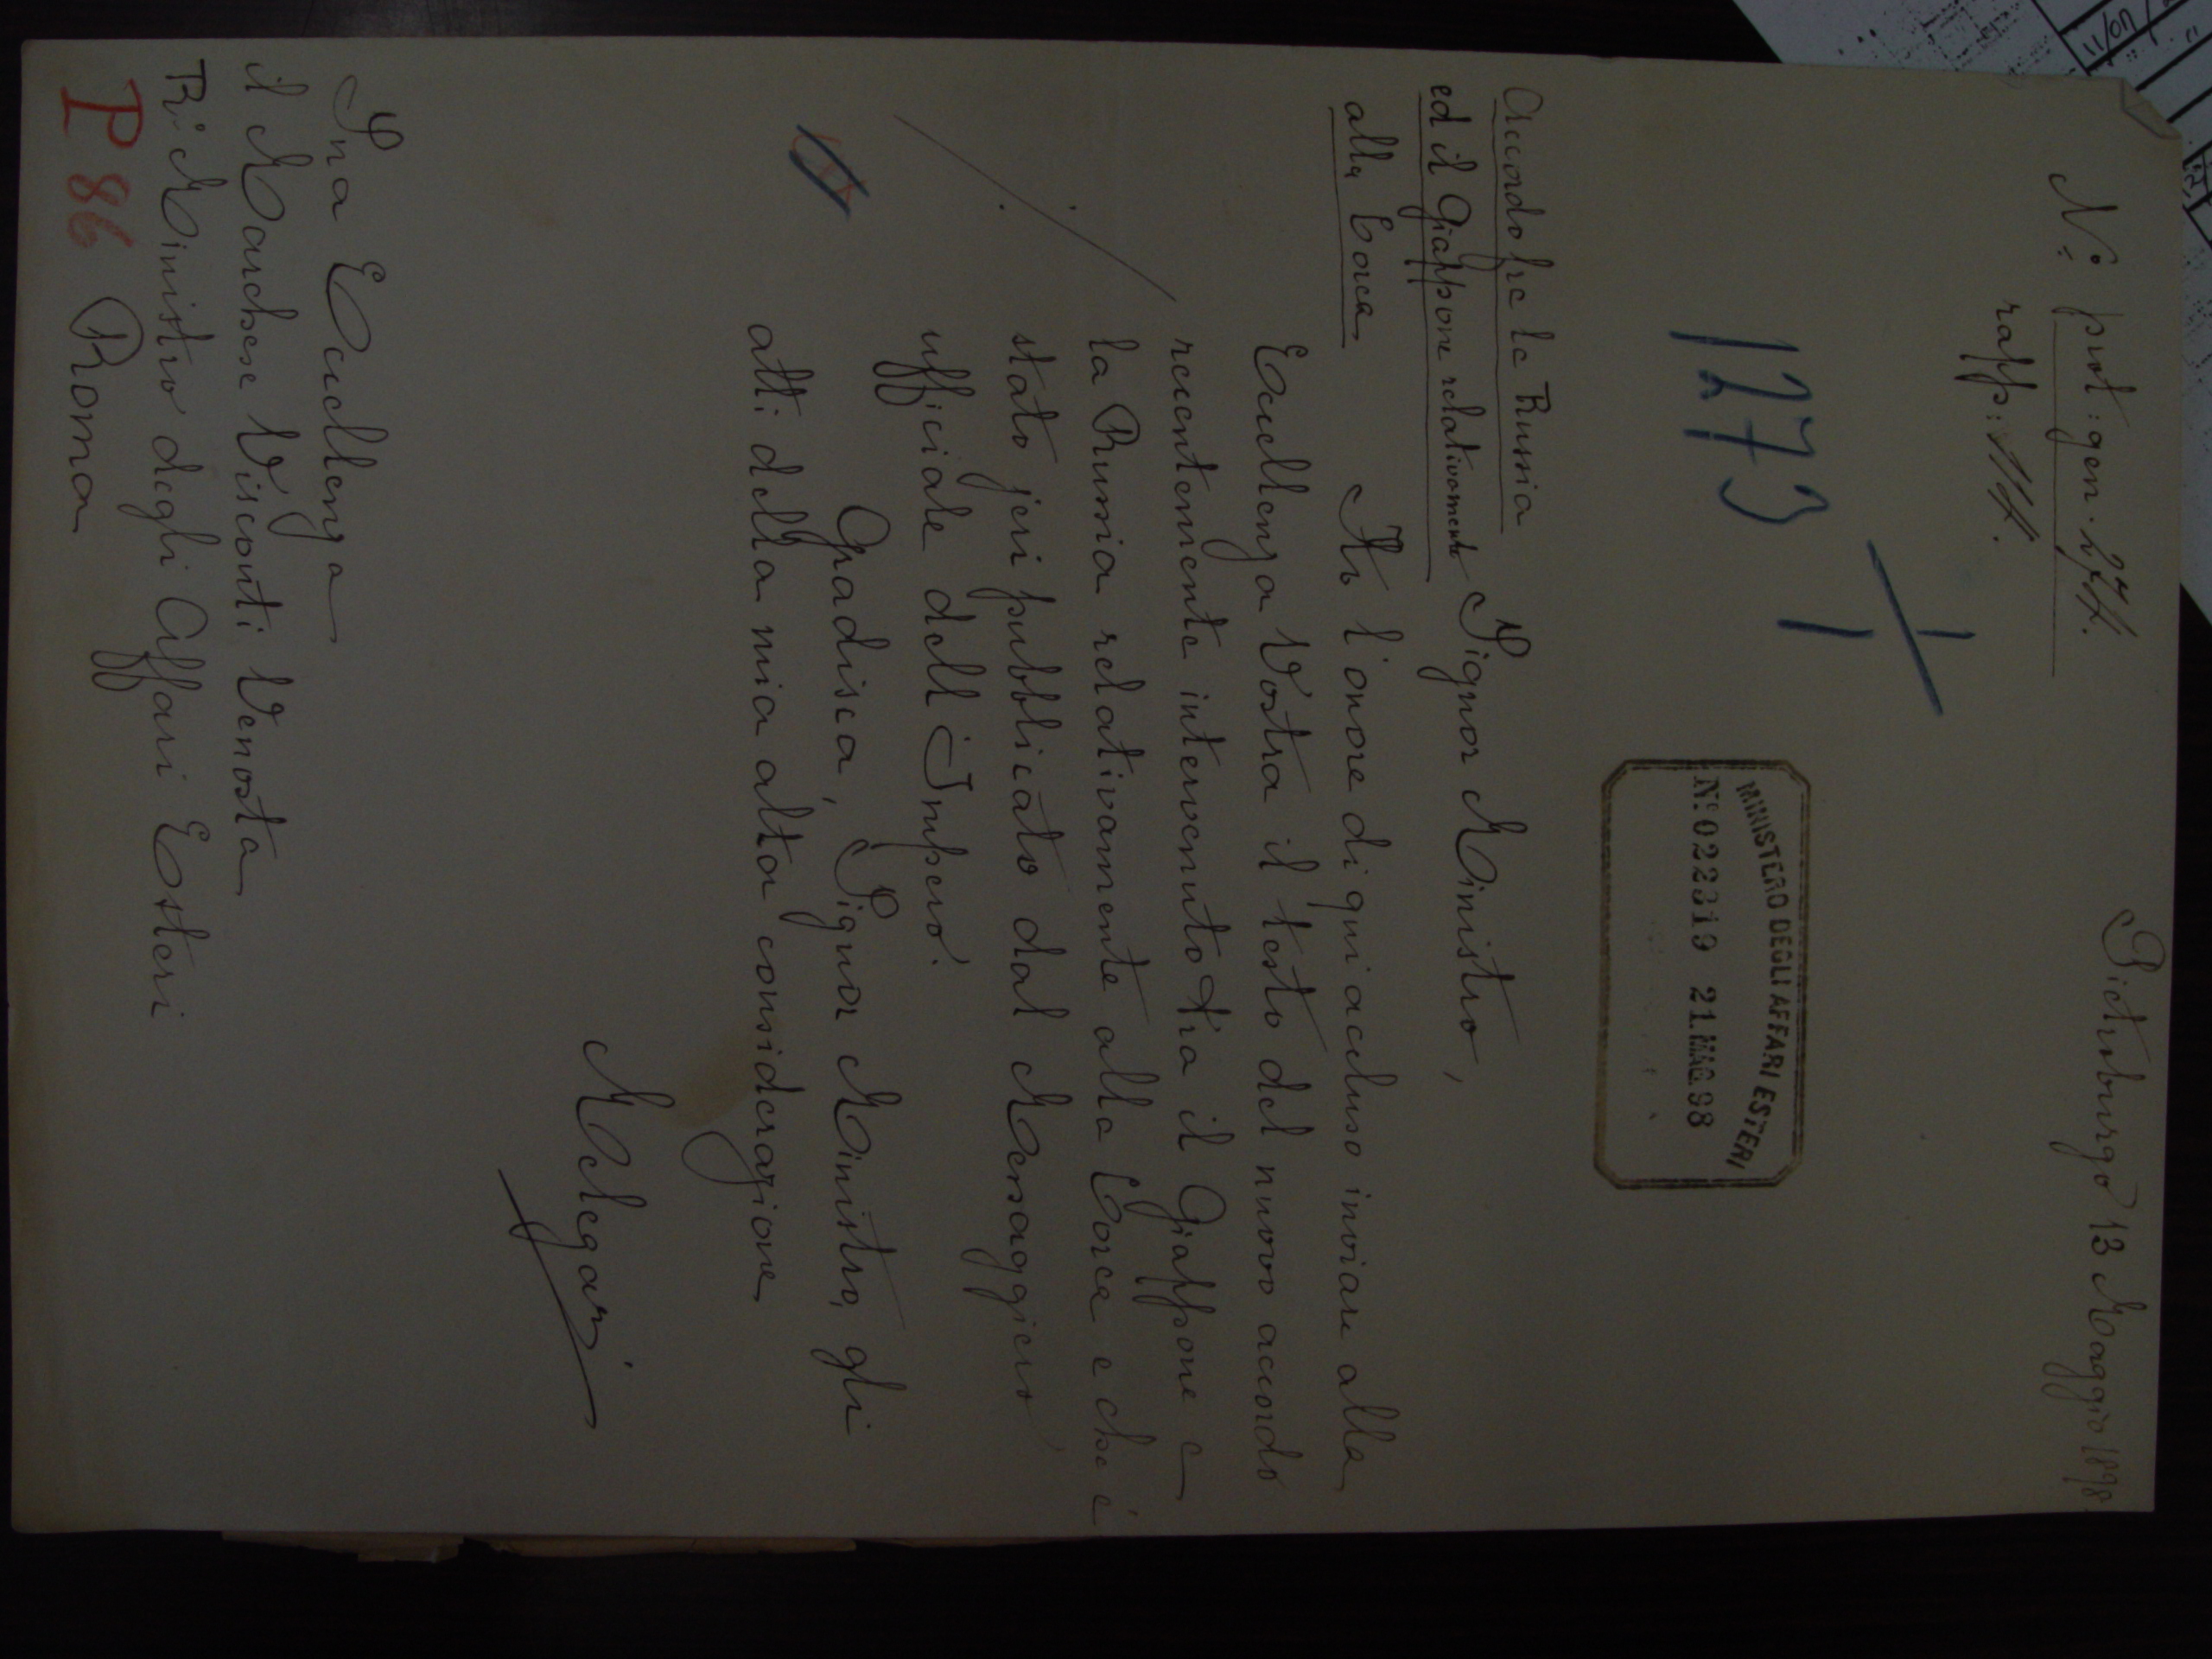 Pietroburgo 13 Maggio 1898
Nº: prot: gen. 274.
rapp: 114.
1273
1
MINISTERO DEGLI AFFARI ESTERI
Nº 022319 21.MAG.98
Accordo fra la Russia
ed il Giappone relativamente
alla Corea
Signor Ministro,
Ho l'onore di qui accluso inviare alla
Eccellenza Vostra il testo del nuovo accordo
recentemente intervenuto tra il Giappone e
la Russia relativamente alla Corea e che è
stato jeri pubblicato dal Messaggiero
ufficiale dell'Impero.
Gradisca, Signor Ministro, gli
atti della mia alta considerazione
Melegari
Sua Eccellenza
il Marchese Visconti Venosta
R: Ministro degli Affari Esteri
Roma
P 86